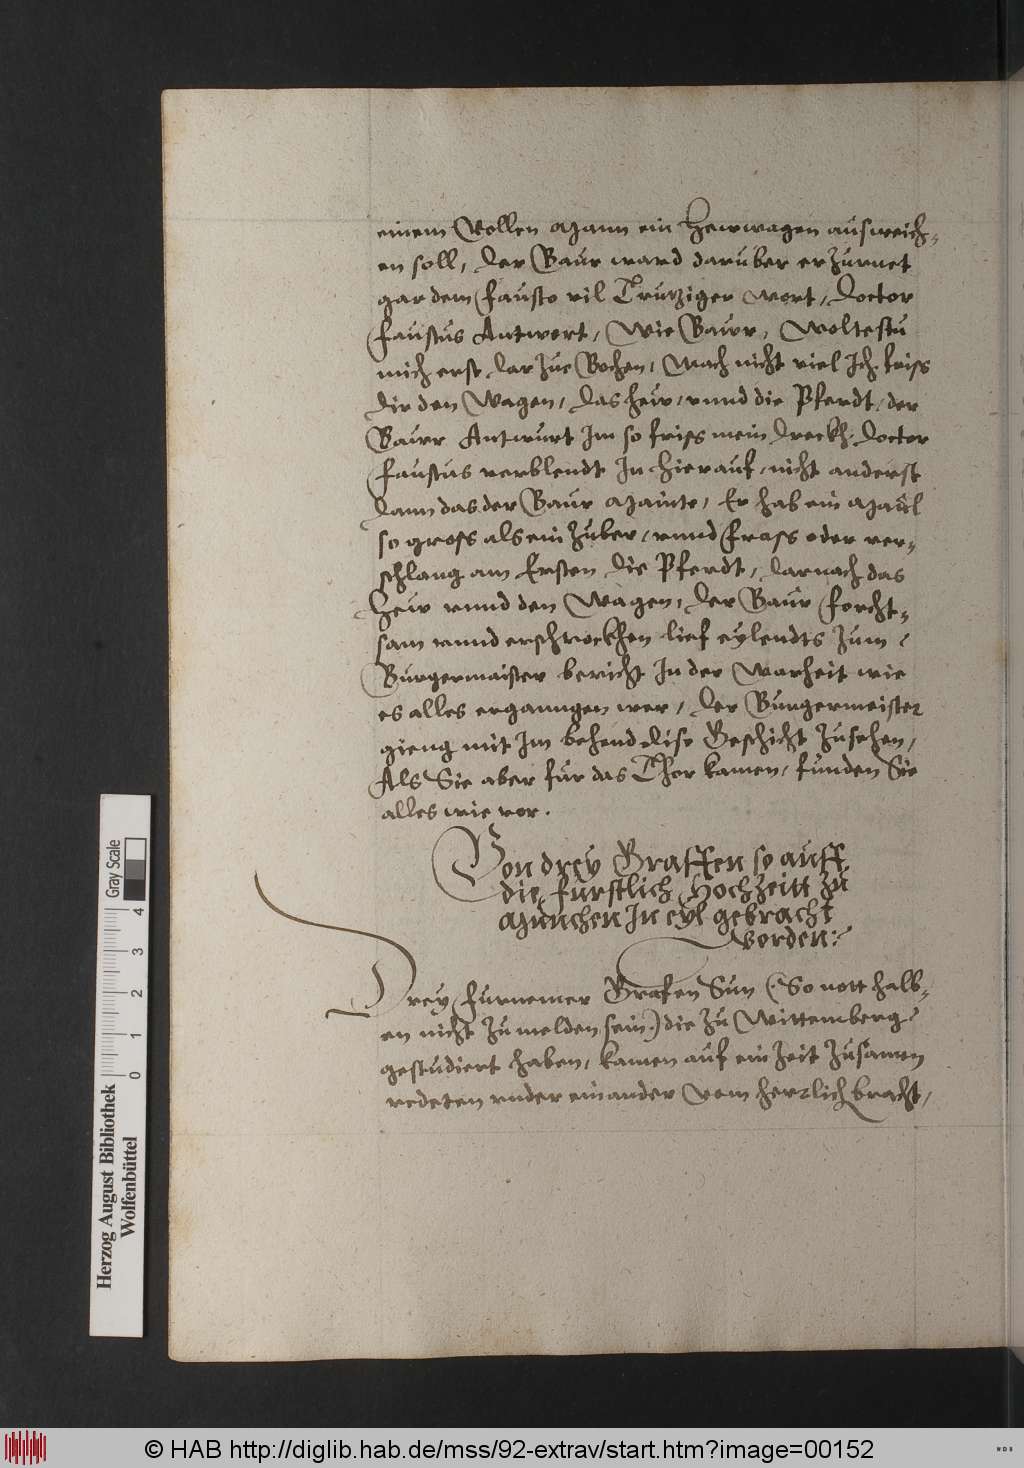 einem Vollen Mann ein Hewwagen ausweich-
en soll, der Baur ward darüber erzurnet
gar dem Fausto vil Trutziger wort, Doctor
Faustus Antwort, Wie Bawr, Woltestu
mich erst darzue Bochen, Mach nicht viel Ich friss
dir den Wagen, das hew, vnnd die Pferdt, der
Baurr Antwurt Im so friss mein dreckh. Doctor
Faustus verblendt In hierauf, nicht anderst
dann das der Baur Mainte, Er hab ein Maul
so gross als ein Zuber, vnnd frass oder ver-
schlang am Ersten die Pferdt, darnach das
Hew vnnd den Wagen, der Baur forcht-
sam vnnd erschrockhen lief eylendts zum
Burgermaister bericht In der Warheit wie
es alles ergangen wer, der Burgermeister
gieng mit Im behend dise Geschicht zusehen,
Als Sie aber für das Thor kamen, funden Sie
alles wie vor.
Von drey Graffen so auff
die fürstlich Hochzeitt zu
München In eyl gebracht
worden:
Drey furnemer Grafen Sun (So nott halb-
en nicht zu melden sein) die zu Wittemberg
gestudiert haben, kamen auf ein Zeit zusamen
redeten vnder einander vom herrlich bracht,
Gray Scale
0 1 2 3 4
Herzog August Bibliothek
Wolfenbüttel
© HAB http://diglib.hab.de/mss/92-extrav/start.htm?image=00152
WDB